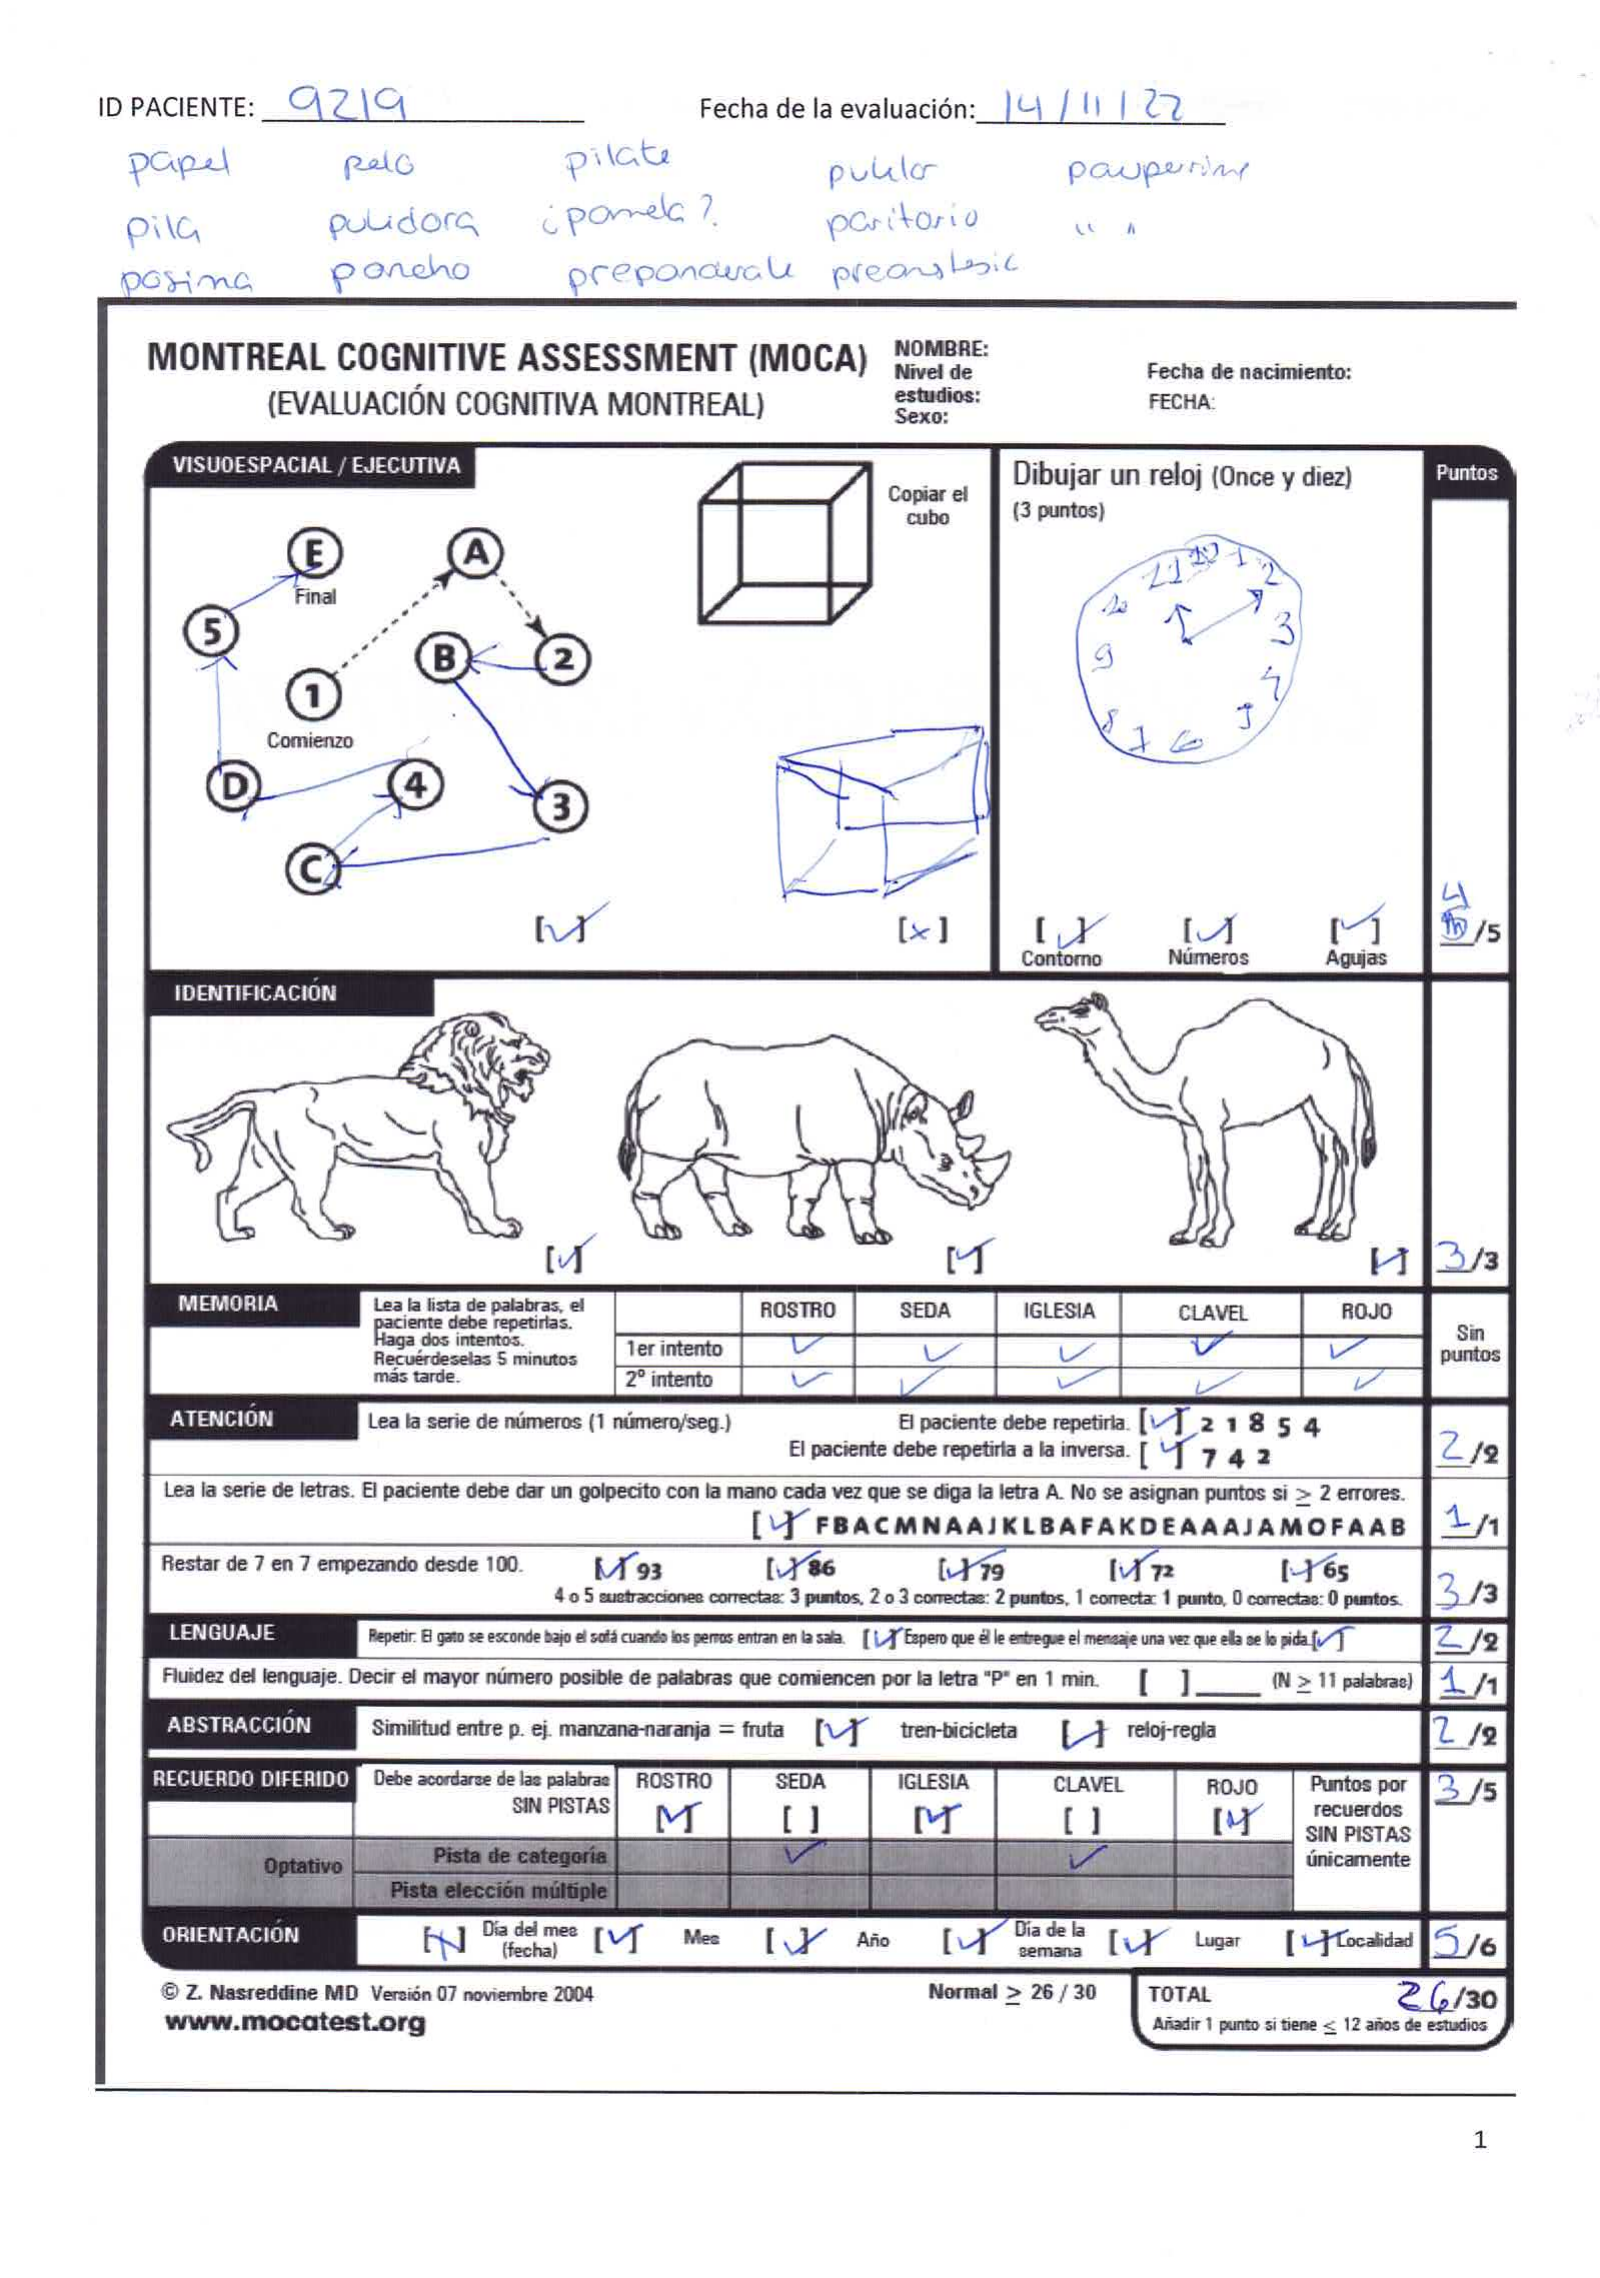 ID PACIENTE: 9219 Fecha de la evaluación: 14/11/22
papel pelo pilate
pila pulidora ¿pamela? paritorio " "
poncho
MONTREAL COGNITIVE ASSESSMENT (MOCA)
(EVALUACIÓN COGNITIVA MONTREAL)
NOMBRE:
Nivel de
estudios:
Sexo:
Fecha de nacimiento:
FECHA:
VISUOESPACIAL / EJECUTIVA
E
Final
A
5
B
2
1
Comienzo
D
4
3
C
[✓]
Copiar el
cubo
[x]
Dibujar un reloj (Once y diez)
(3 puntos)
11 12 1 2
10 3
9 4
8 7 6 5
[✓] [✓] [✓]
Contorno Números Agujas
Puntos
4
/5
IDENTIFICACIÓN
[✓] [✓] [✓] 3/3
MEMORIA
Lea la lista de palabras, el
paciente debe repetirlas.
Haga dos intentos.
Recuérdeselas 5 minutos
más tarde.
ROSTRO SEDA IGLESIA CLAVEL ROJO
1er intento ✓ ✓ ✓ ✓ ✓
2º intento ✓ ✓ ✓ ✓ ✓
Sin
puntos
ATENCIÓN
Lea la serie de números (1 número/seg.) El paciente debe repetirla. [✓] 2 1 8 5 4
El paciente debe repetirla a la inversa. [✓] 7 4 2
2/2
Lea la serie de letras. El paciente debe dar un golpecito con la mano cada vez que se diga la letra A. No se asignan puntos si ≥ 2 errores.
[✓] FBACMNAAJKLBAFAKDEAAAJAMOFAAB 1/1
Restar de 7 en 7 empezando desde 100. [✓] 93 [✓] 86 [✓] 79 [✓] 72 [✓] 65
4 o 5 sustracciones correctas: 3 puntos, 2 o 3 correctas: 2 puntos, 1 correcta: 1 punto, 0 correctas: 0 puntos. 3/3
LENGUAJE Repetir: El gato se esconde bajo el sofá cuando los perros entran en la sala. [✓] Espero que él le entregue el mensaje una vez que ella se lo pida. [✓] 2/2
Fluidez del lenguaje. Decir el mayor número posible de palabras que comiencen por la letra "P" en 1 min. [ ]____ (N ≥ 11 palabras) 1/1
ABSTRACCIÓN Similitud entre p. ej. manzana-naranja = fruta [✓] tren-bicicleta [✓] reloj-regla 2/2
RECUERDO DIFERIDO
Debe acordarse de las palabras
SIN PISTAS
ROSTRO SEDA IGLESIA CLAVEL ROJO
[✓] [ ] [✓] [ ] [✓]
Puntos por
recuerdos
SIN PISTAS
únicamente
3/5
Optativo
Pista de categoría ✓ ✓
Pista elección múltiple
ORIENTACIÓN [x] Día del mes (fecha) [✓] Mes [✓] Año [✓] Día de la semana [✓] Lugar [✓] Localidad 5/6
© Z. Nasreddine MD Versión 07 noviembre 2004
www.mocatest.org
Normal ≥ 26 / 30
TOTAL 26/30
Añadir 1 punto si tiene ≤ 12 años de estudios
1